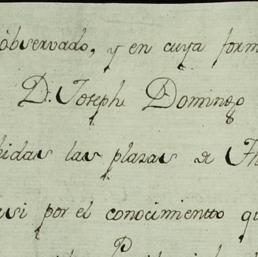 observado, y en cuya form
D. Joseph Domingo
bidas las plazas de
asi por el conocimientto qu